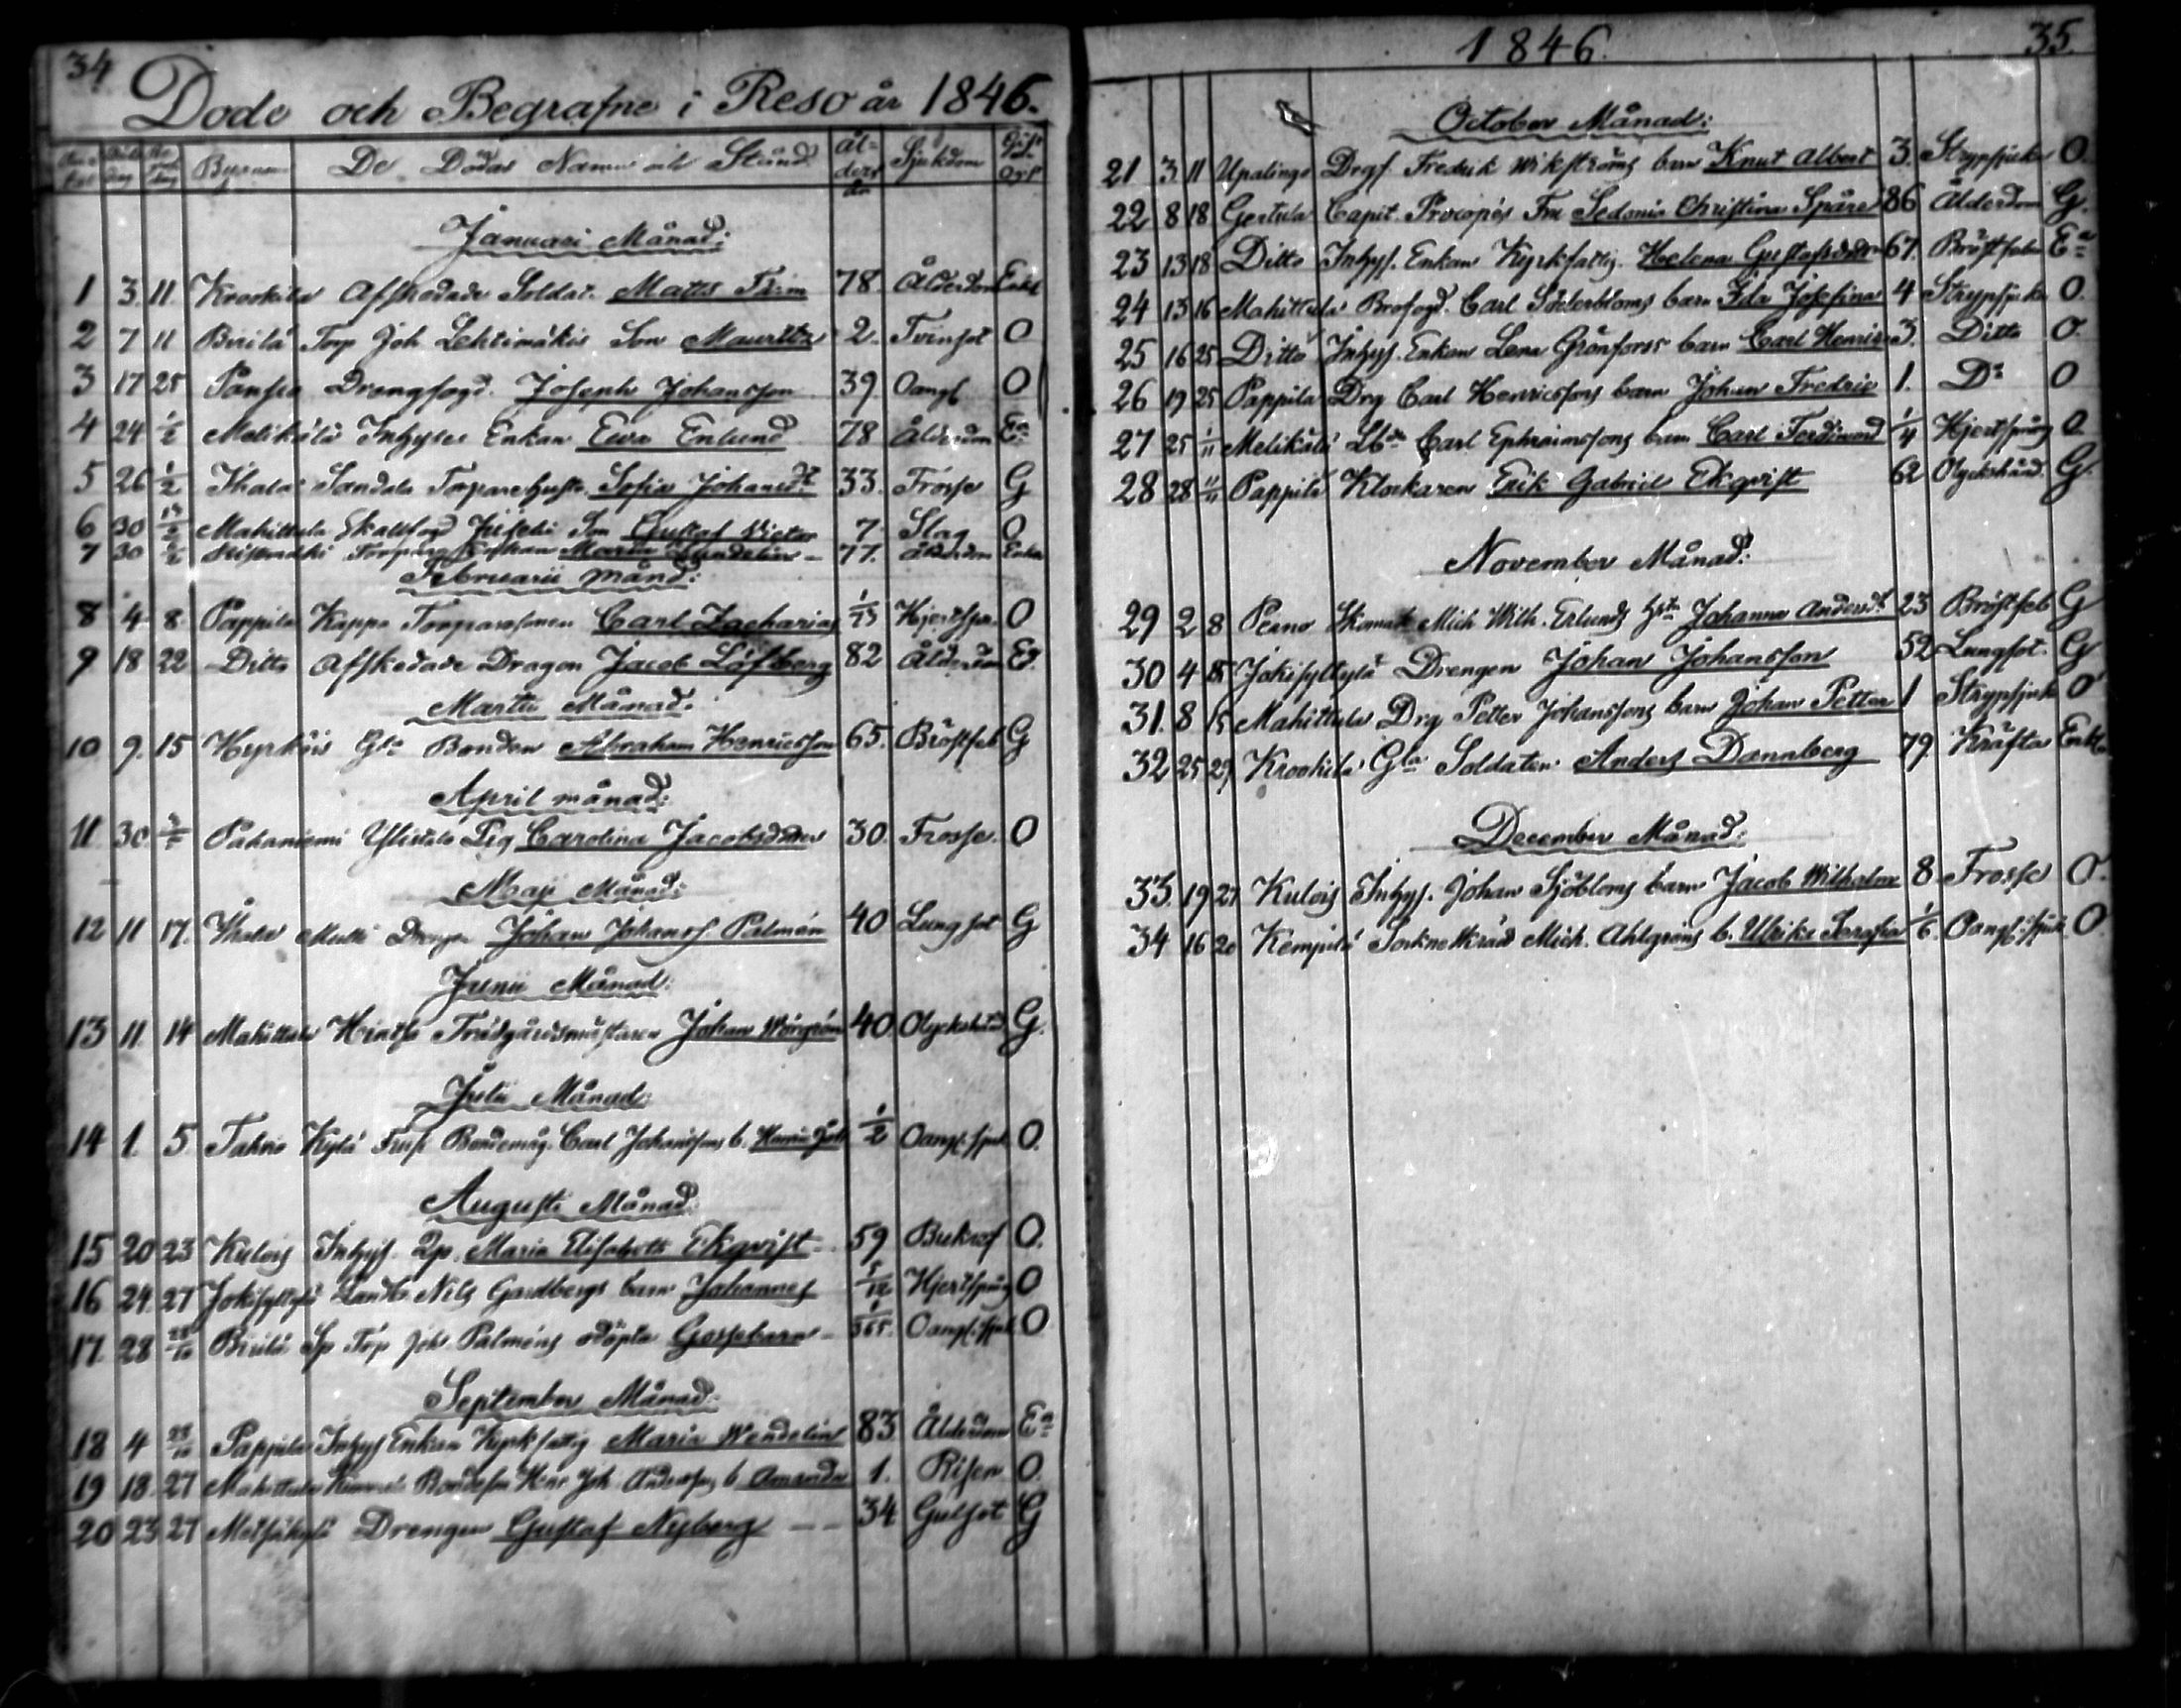 34
Döde och Begrafne i Reso år 1846.
Byarnas De Dödas Namn och Stånd Ål-ders år Sjukdom Gift Ogift
Januari Månad:
1 3. 11. Krookila Afskedade Soldat. Matts Trim 78. Ålderdom Enkl
2 7 11 Birilä Torp Joh Lehtimäkis Son Mauritz 2. Tvinsot O
3 17 25 Pånsio Drengfogd. Joseph Johansson 39 Oangf. O
4 24 1/2 Melikälä Inhyses Enkan Ewa Enlund 78 Ålderdom Ea
5 26 1/2 Ihala Sandala Torparehustr. Sofia Johansdr 33. Frossa G
6 30 Mahittula Skallfogd Son Gustaf Victor 7. Slag O
7 30 Torpare Enkan Maria Sundelin 77. Ålderdom Enka
Februarii Månd:
8 4 8. Pappila Kappa Torparesonen Carl Zacharias Hjertspr. O
9 18 22 Ditto Afskedade Dragon Jacob Löfberg 82 Ålderdom
Martii Månad.
10 9. 15 Hyrköis Gla Bonden Abraham Henricsson 65. Bröstfeb G
April månad:
11. 30. Pahaniemi Ylistalo Pig Carolina Jacobsdotter 30. Frossa. O
Maji Månad:
12 11 17. Ihala Multi Drengen Johan Johanss Palmén 40 Lungsot G
Junii Månad:
13 11. 14 Mahittula Trädgårdsmästaren Johan 40. Olyckshänd G.
Julii Månad:
14 1. 5 Tahvio Kylä Bondemåg. Carl Johanssons b. 1/2 Oangf. sjuk O.
Augusti Månad:
15 20 23 Kulois Inhys. Qp. Maria Elisabeth Ekqvist 59 Bukref O.
16 24. 27 Jokisyltylä Nils Gardbergs barn Johannes 5/12 Hjertsprång O
17 28 Birilä Torp Joh. Palméns odöpta Gossebarn 1/365. Oangf. sjuk O
September Månad:
18 4 Pappila Inhys Enkan Kyrkfattig Maria Wendelin 83 Ålderdom Ea
19 18. 27 Mahittula Bondeson Henr Joh Anderssons b. Amanda 1. Risen O.
20 23 27 Metsäkylä Drengen Gustaf Nyberg 34 Gulsot G
1846.
35.
October Månad:
21 3 11 Upalinga Drgf. Fredrik Wikströms barn Knut Albert 3. Strypsjuka O.
22 8 18 Gertula Capit. Procopés Fru Sedonia Christina Spåre 86 Ålderdom G.
23 13 18 Ditto Inhys. Enkan Kyrkfattig. Helena Gustafsdotter 67. Bröstfeber Ea
24 13 16 Mahittula Brofogd. Carl Söderbloms barn Ida Josefina 4 Strypsjuka O.
25 16 25 Ditto Inhys. Enkan Lena Grönforss barn Carl Henric 3. Ditto O.
26 19 25 Pappila Drg Carl Henricssons barn Johan Fredric 1. Do O
27 25 1/11 Melikälä Carl Ephraimssons barn Carl Ferdinand 1/4 Hjertsprång O.
28 28 Pappila Klockaren Erik Gabriel Ekqvist 62 Olyckshänd. G.
November Månad:
29 2 8 Perno Skomak Mich Wilh. Erlunds hstr Johanna Andersdr 23 Bröstfeb G
30 4 Jokisyltylä Drengen Johan Johansson 52 Lungsot. G
31. 8 15 Mahittula Drg Petter Johanssons barn Johan Petter 1 Strypsjuk O
32 25 29 Krookila Gla Soldaten Anders Dannberg 79. Kräfta Enkl
December Månad:
33. 19 27 Kulois Inhys. Johan Sjöbloms barn Jacob Wilhelm 8 Frossa O.
34 16 20 Kempilä Sockneskräd Mich. Ahlgrens b. Ulrika Serafia 1/6. Oangf. sjuk O.